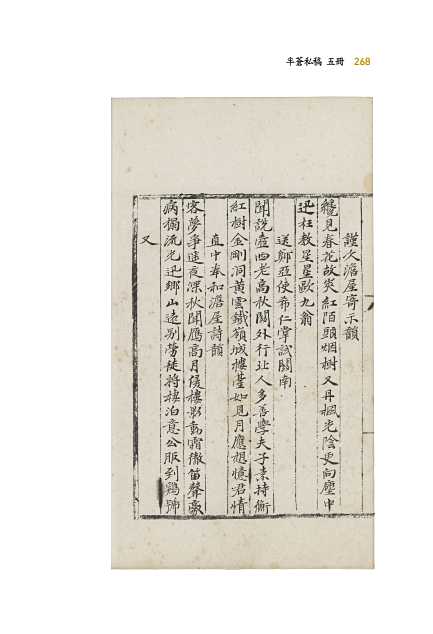 半蒼私稿 五冊 268
謹次澹屋寄示韻
纔見春花故癸紅陌頭烟樹又丹楓光陰更向塵中
迅枉教星星歐九翁
送鄭亞使希仁掌試關南
聞說壺西老高秋關外行北人多善學夫子素持衡
紅樹金剛洞黃雲鐵嶺城樓臺如見月應想憶君情
直中奉和澹屋詩韻
客夢爭迷夜深秋聞鴈高月侵樓影動霜徹笛聲豪
病榻流光迅鄉山遠別勞徒將棲泊意公服到鷄號
又